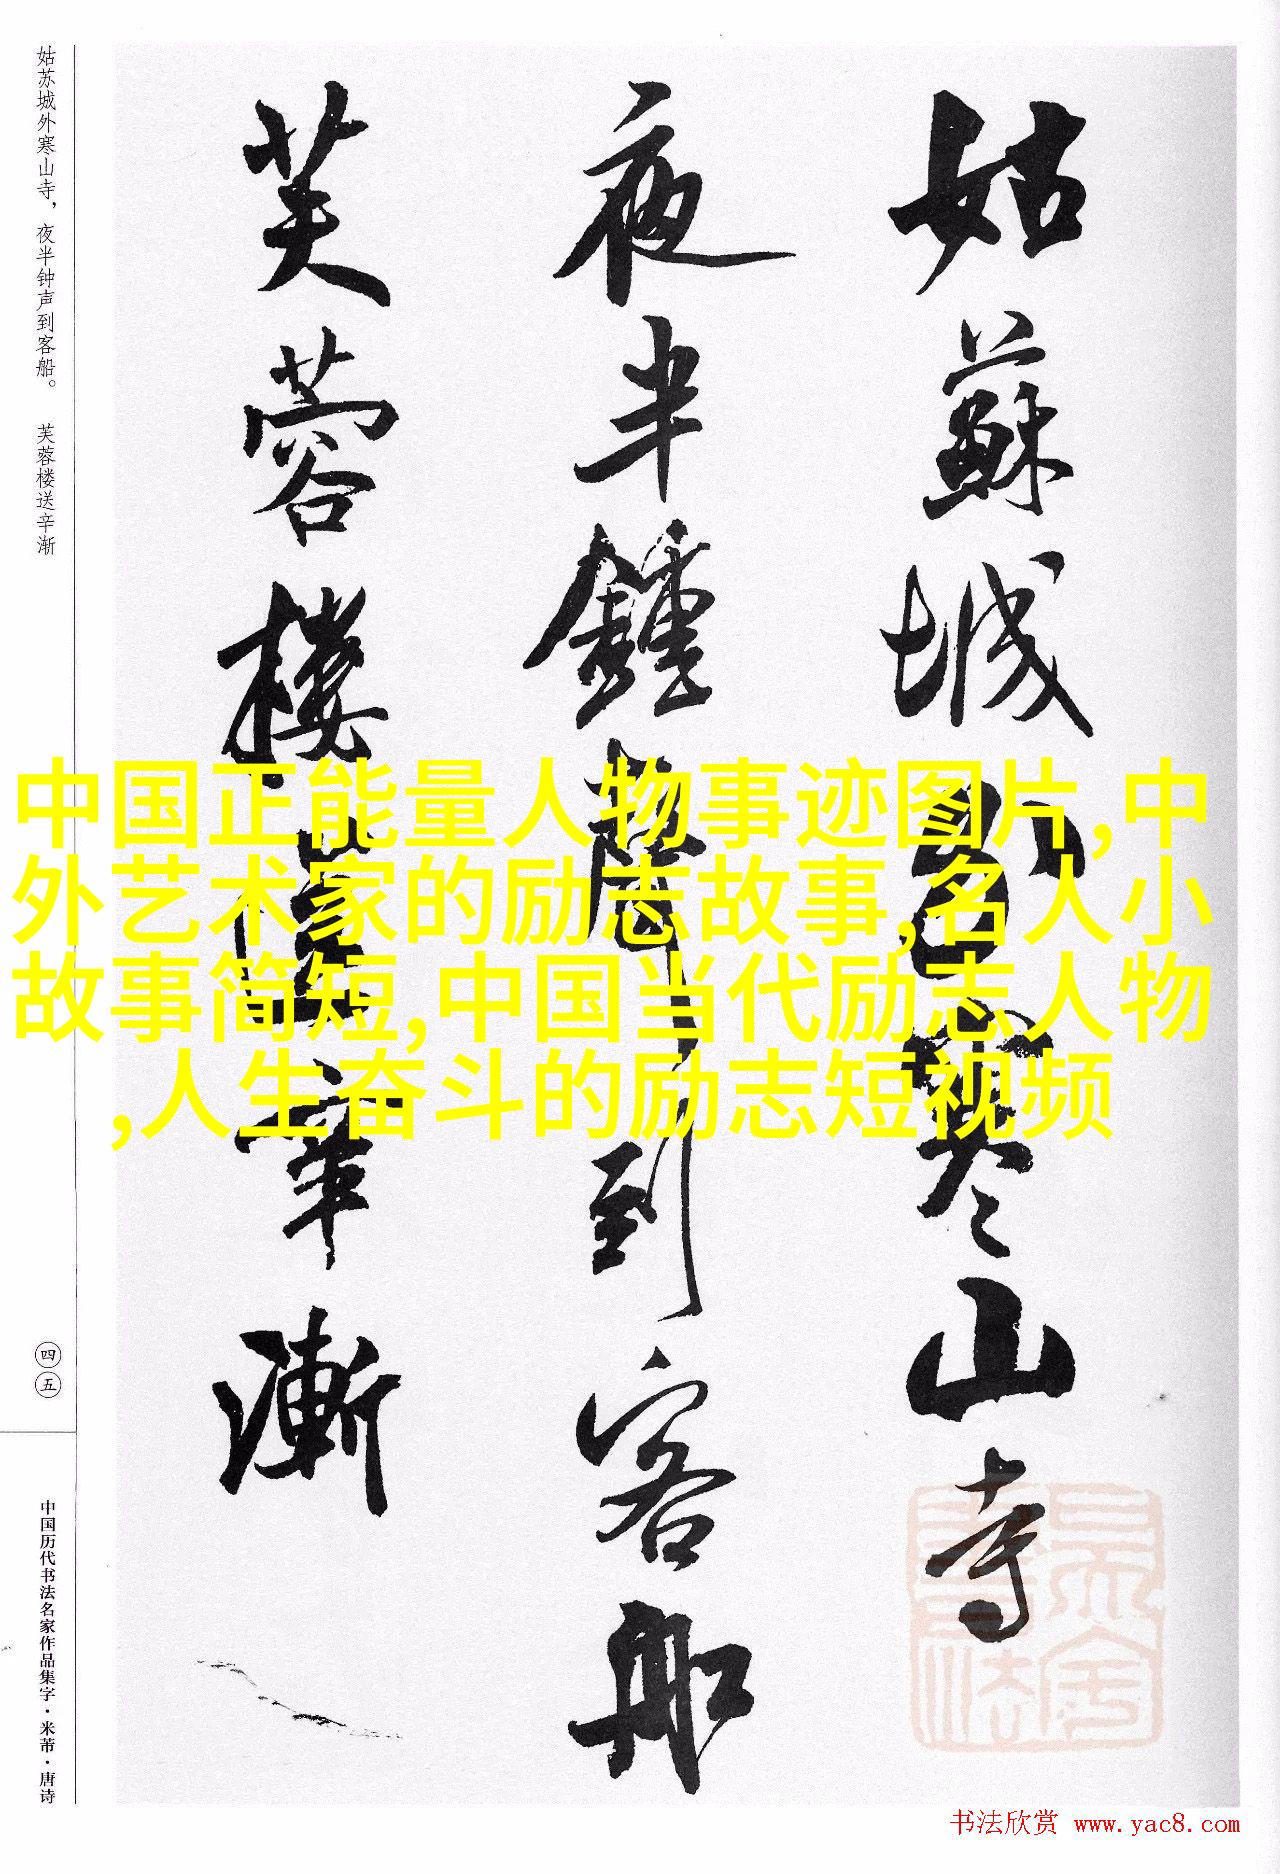 姑苏城外寒山寺，夜半钟声到客船。 芙蓉楼送辛渐
姑蘇城外寒山寺
夜半鐘聲到客船
芙蓉樓送辛漸
中国正能量人物事迹图片,中
外艺术家的励志故事,名人小
故事简短,中国当代励志人物
,人生奋斗的励志短视频
四五
中国历代书法名家作品集字·米芾·唐诗
书法欣赏 www.yac8.com